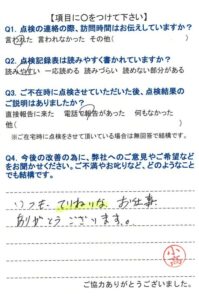 【項目に○をつけて下さい】
Q1. 点検の連絡の際、訪問時間はお伝えしていますか?
言われた 言われなかった その他(
)
Q2. 点検記録表は読みやすく書かれていますか?
読みやすい 一応読める 読みづらい 読めない部分がある
Q3. ご不在時に点検させていただいた後、点検結果の
ご説明はありましたか?
直接報告に来た 電話で報告があった 何もなかった
他(
)
※ご在宅時に点検をさせて頂いている場合は無回答で結構です。
Q4. 今後の改善の為に、弊社へのご意見やご希望など
をお聞かせください。ご不満やお叱りなど、どのようなこと
でも結構です。
いつも、ていねいな お仕事
ありがとうございます。
ご協力ありがとうございました。